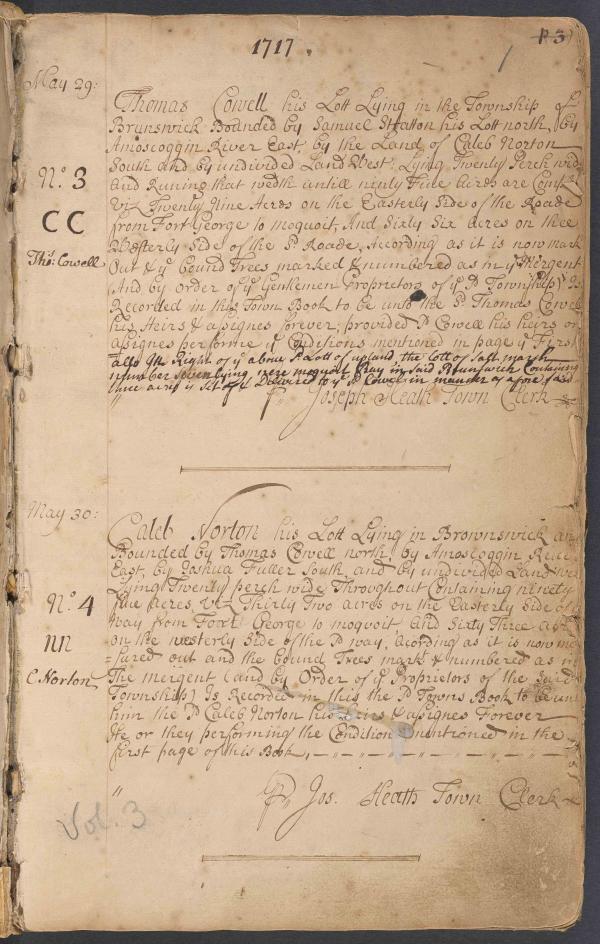 P 3
1717.
May 29:
Thomas Cowell his Lott Lying in the Township of
Brunswick Bounded by Samuel Stratton his Lott north, by
Amoscoggin River East, by the Land of Caleb Norton
South and by undivided Land West, Lying Twenty Perch wide
and Runing that wedth untill ninty Five acres are
Viz Twenty Nine Acres on the Easterly Side of the Roade
from Fort George to moquoit, And Sixty Six acres on thee
Westerly Side of the sd Roade, According as it is now mark
Out & ye bound Trees marked & numbered as in ye Mergent
And by order of ye Gentlemen Proprietors of ye sd Township Is
Recorded in this Town Book to be unto the sd Thomas Cowell
his Heirs & assignes forever, provided sd Cowell his heirs or
assignes performe ye Condisions mentioned in page ye First
also In Right of ye above sd Lott of upland, the lott of salt marsh
number seven lying nere moquoit Bay in said Brunswick Containing
three acres is Set of & Delivred to ye sd Cowel in manner as afore said
Joseph Heath Town Clerk
No. 3
CC
Tho: Cowell
May 30:
Caleb Norton his Lott Lying in Brownswick and
Bounded by Thomas Cowell north, by Amoscoggin River
East, by Joshua Fuller South and by undivided Land
Lying Twenty perch wide Throughout Containing ninety
five acres, Viz Thirty Two acres on the Easterly Side of
way from Fort George to moquoit and Sixty Three acres
on the westerly Side of the sd way, Acording as it is now mea
=sured out and the bound Trees markt & numbered as in
The mergent (and by Order of ye Proprietors of the said
Township) Is Recorded in this the sd Towns Book to be unto
him the sd Caleb Norton his heirs & assignes Forever
He or they performing the Conditions mentioned in the
first page of this Book,
No. 4
nn
C Norton
Jos. Heath Town Clerk
Vol. 3